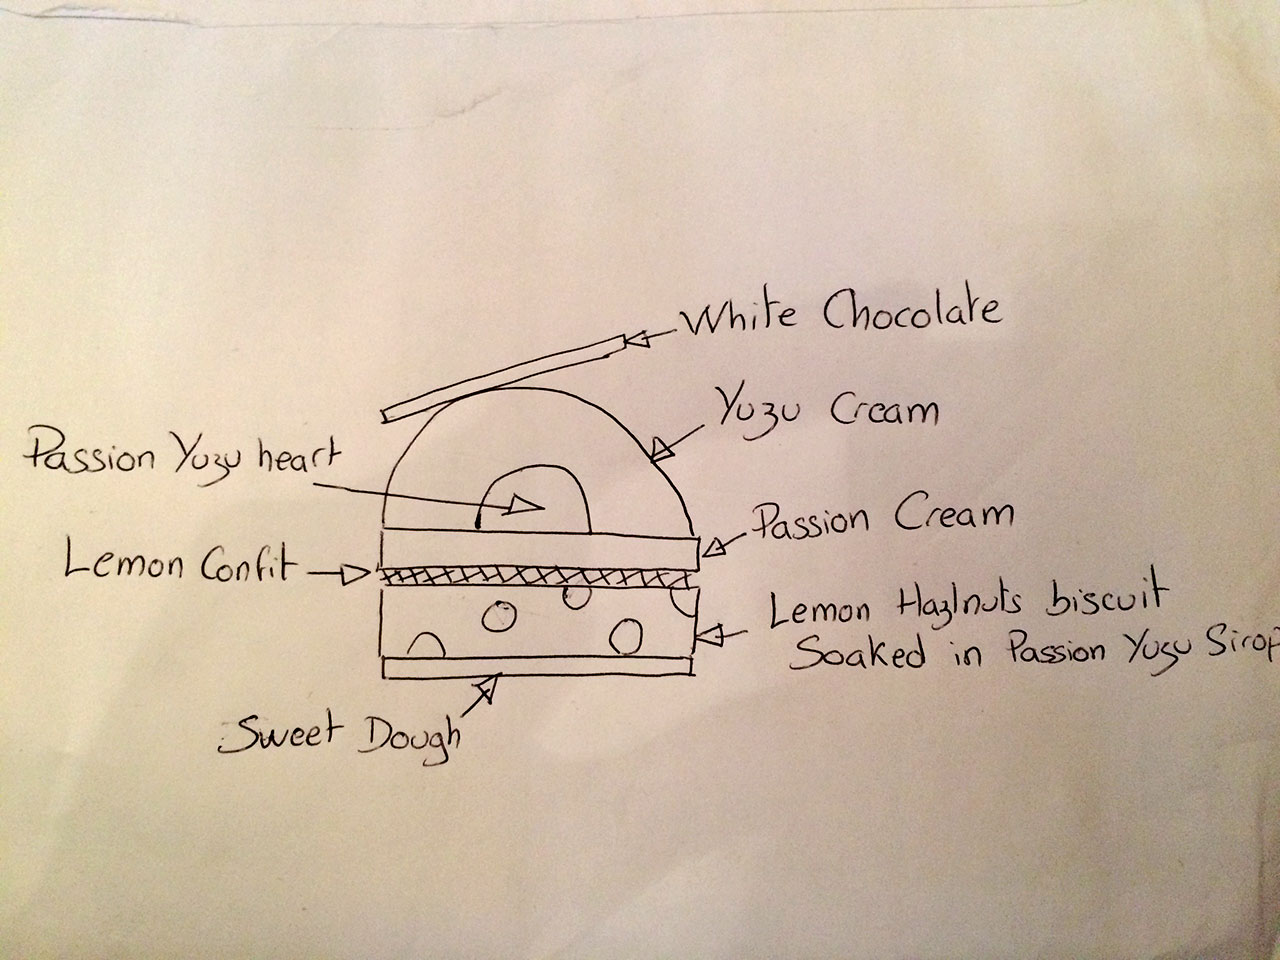 White Chocolate
Yuzu Cream
Passion Yuzu heart
Passion Cream
Lemon Confit
Lemon Hazlnuts biscuit
Soaked in Passion Yuzu Sirop
Sweet Dough